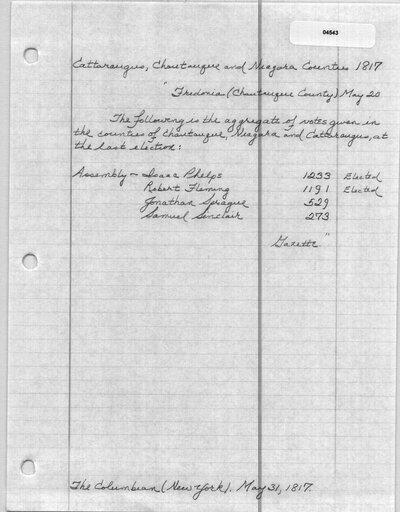 04543
Cattaraugus, Chautauque and Niagara Counties 1817
"Fredonia (Chautauque County) May 20
The following is the aggregate of votes given in
the counties of Chautauque, Niagara and Cattaraugus, at
the last election:
Assembly - Isaac Phelps 1233 Elected
Robert Fleming 1191 Elected
Jonathan Sprague 529
Samuel Sinclair 273
Gazette"
The Columbian (New York). May 31, 1817.